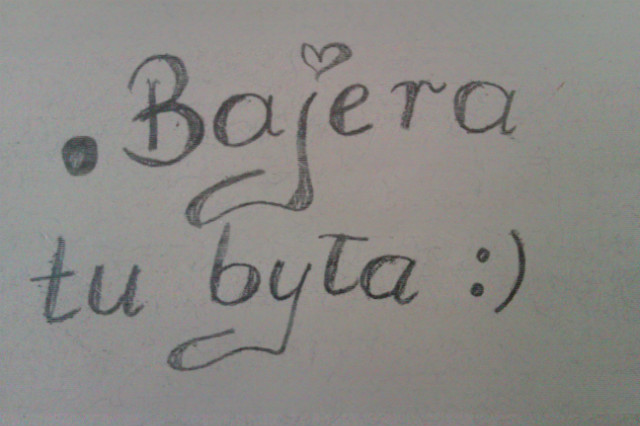 • Bajera
tu była :)